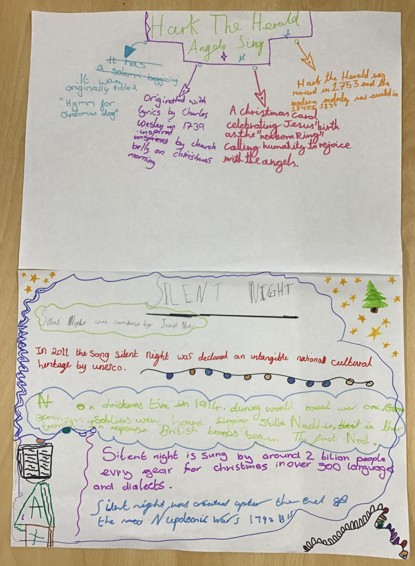 Hark The Herald
Angels Sing
It has
a solemn
It was
originally titled
"Hymn for
Christmas day"
Originated with
Lyrics by Charles
Wesley in 1739
inspired
by church
bells on christmas
morning
A christmas carol
celebrating Jesus' birth
as the "newborn King"
calling humanity to rejoice
with the angels.
Hark the Herald was
revised in 1753 and the
modern melody was
SILENT NIGHT
Silent Night was
In 2011 the song Silent night was declared an intangible national cultural
heritage by unesco.
on christmas Eve in 1914, during world war one
soldiers were heard singing
in response British troops The first Noel.
Silent night is sung by around 2 bilion people
evry year for christmas in over 300 languages
and dialects.
Silent night was created after the end of
the